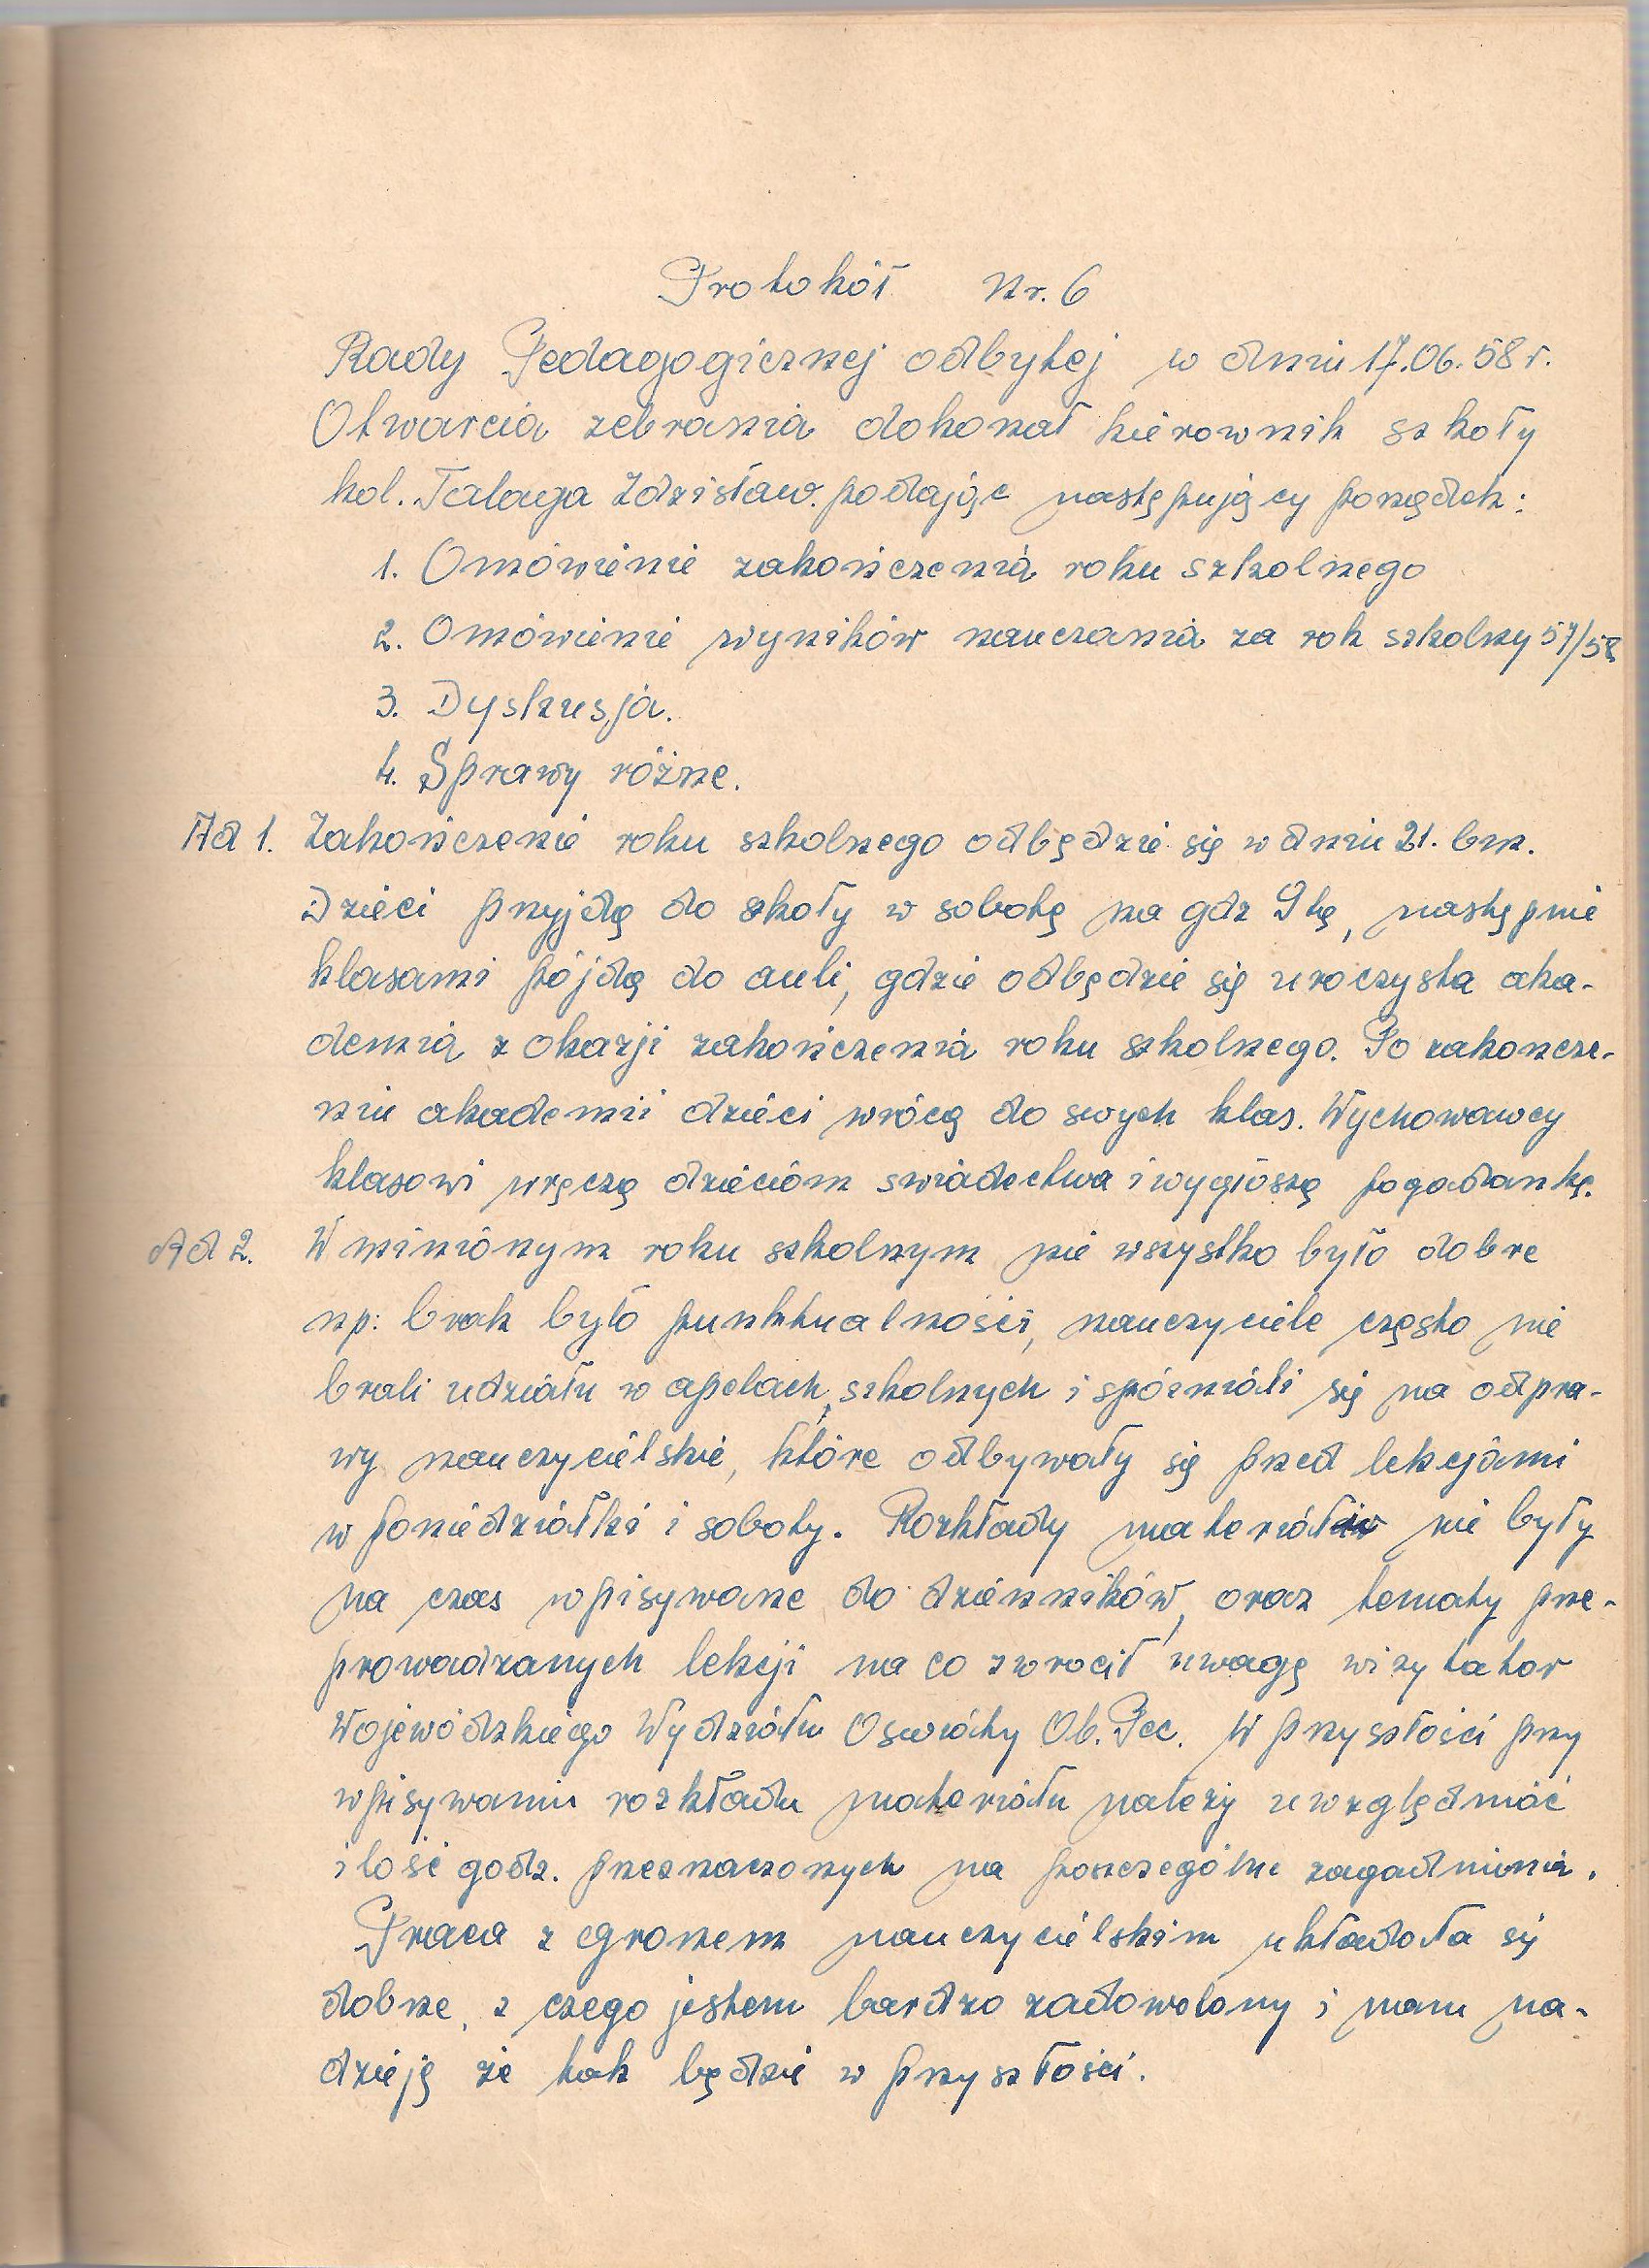 Protokół Nr. 6
Rady Pedagogicznej odbytej w dniu 17.06.58 r.
Otwarcia zebrania dokonał kierownik szkoły
kol. Talaga Zdzisław. podając następujący porządek:
1. Omówienie zakończenia roku szkolnego
2. Omówienie wyników nauczania za rok szkolny 57/58
3. Dyskusja.
4. Sprawy różne.
Ad 1. Zakończenie roku szkolnego odbędzie się w dniu 21. bm.
Dzieci przyjdą do szkoły w sobotę na gdz 9tą, następnie
klasami pójdą do auli, gdzie odbędzie się uroczysta aka-
demia z okazji zakończenia roku szkolnego. Po zakończe-
niu akademii dzieci wrócą do swych klas. Wychowawcy
klasowi wręczą dzieciom swiadectwa i wygłoszą pogadankę.
Ad 2. W minionym roku szkolnym nie wszystko było dobre
np: brak było punktualności, nauczyciele często nie
brali udziału w apelach szkolnych i spóźniali się na odpra-
wy nauczycielskie, które odbywały się przed lekcjami
w poniedziałki i soboty. Rozkłady materiałów nie były
na czas wpisywane do dzienników, oraz tematy prze-
prowadzanych lekcji na co zwrócił uwagę wizytator
Wojewódzkiego Wydziału Oswiaty Ob. Pec. W przyszłości przy
wpisywaniu rozkładu materiału należy uwzględniać
ilość godz. przeznaczonych na poszczególne zagadnienia.
Praca z gronem nauczycielskim układała się
dobrze, z czego jestem bardzo zadowolony i mam na-
dzieję że tak będzie w przyszłości.